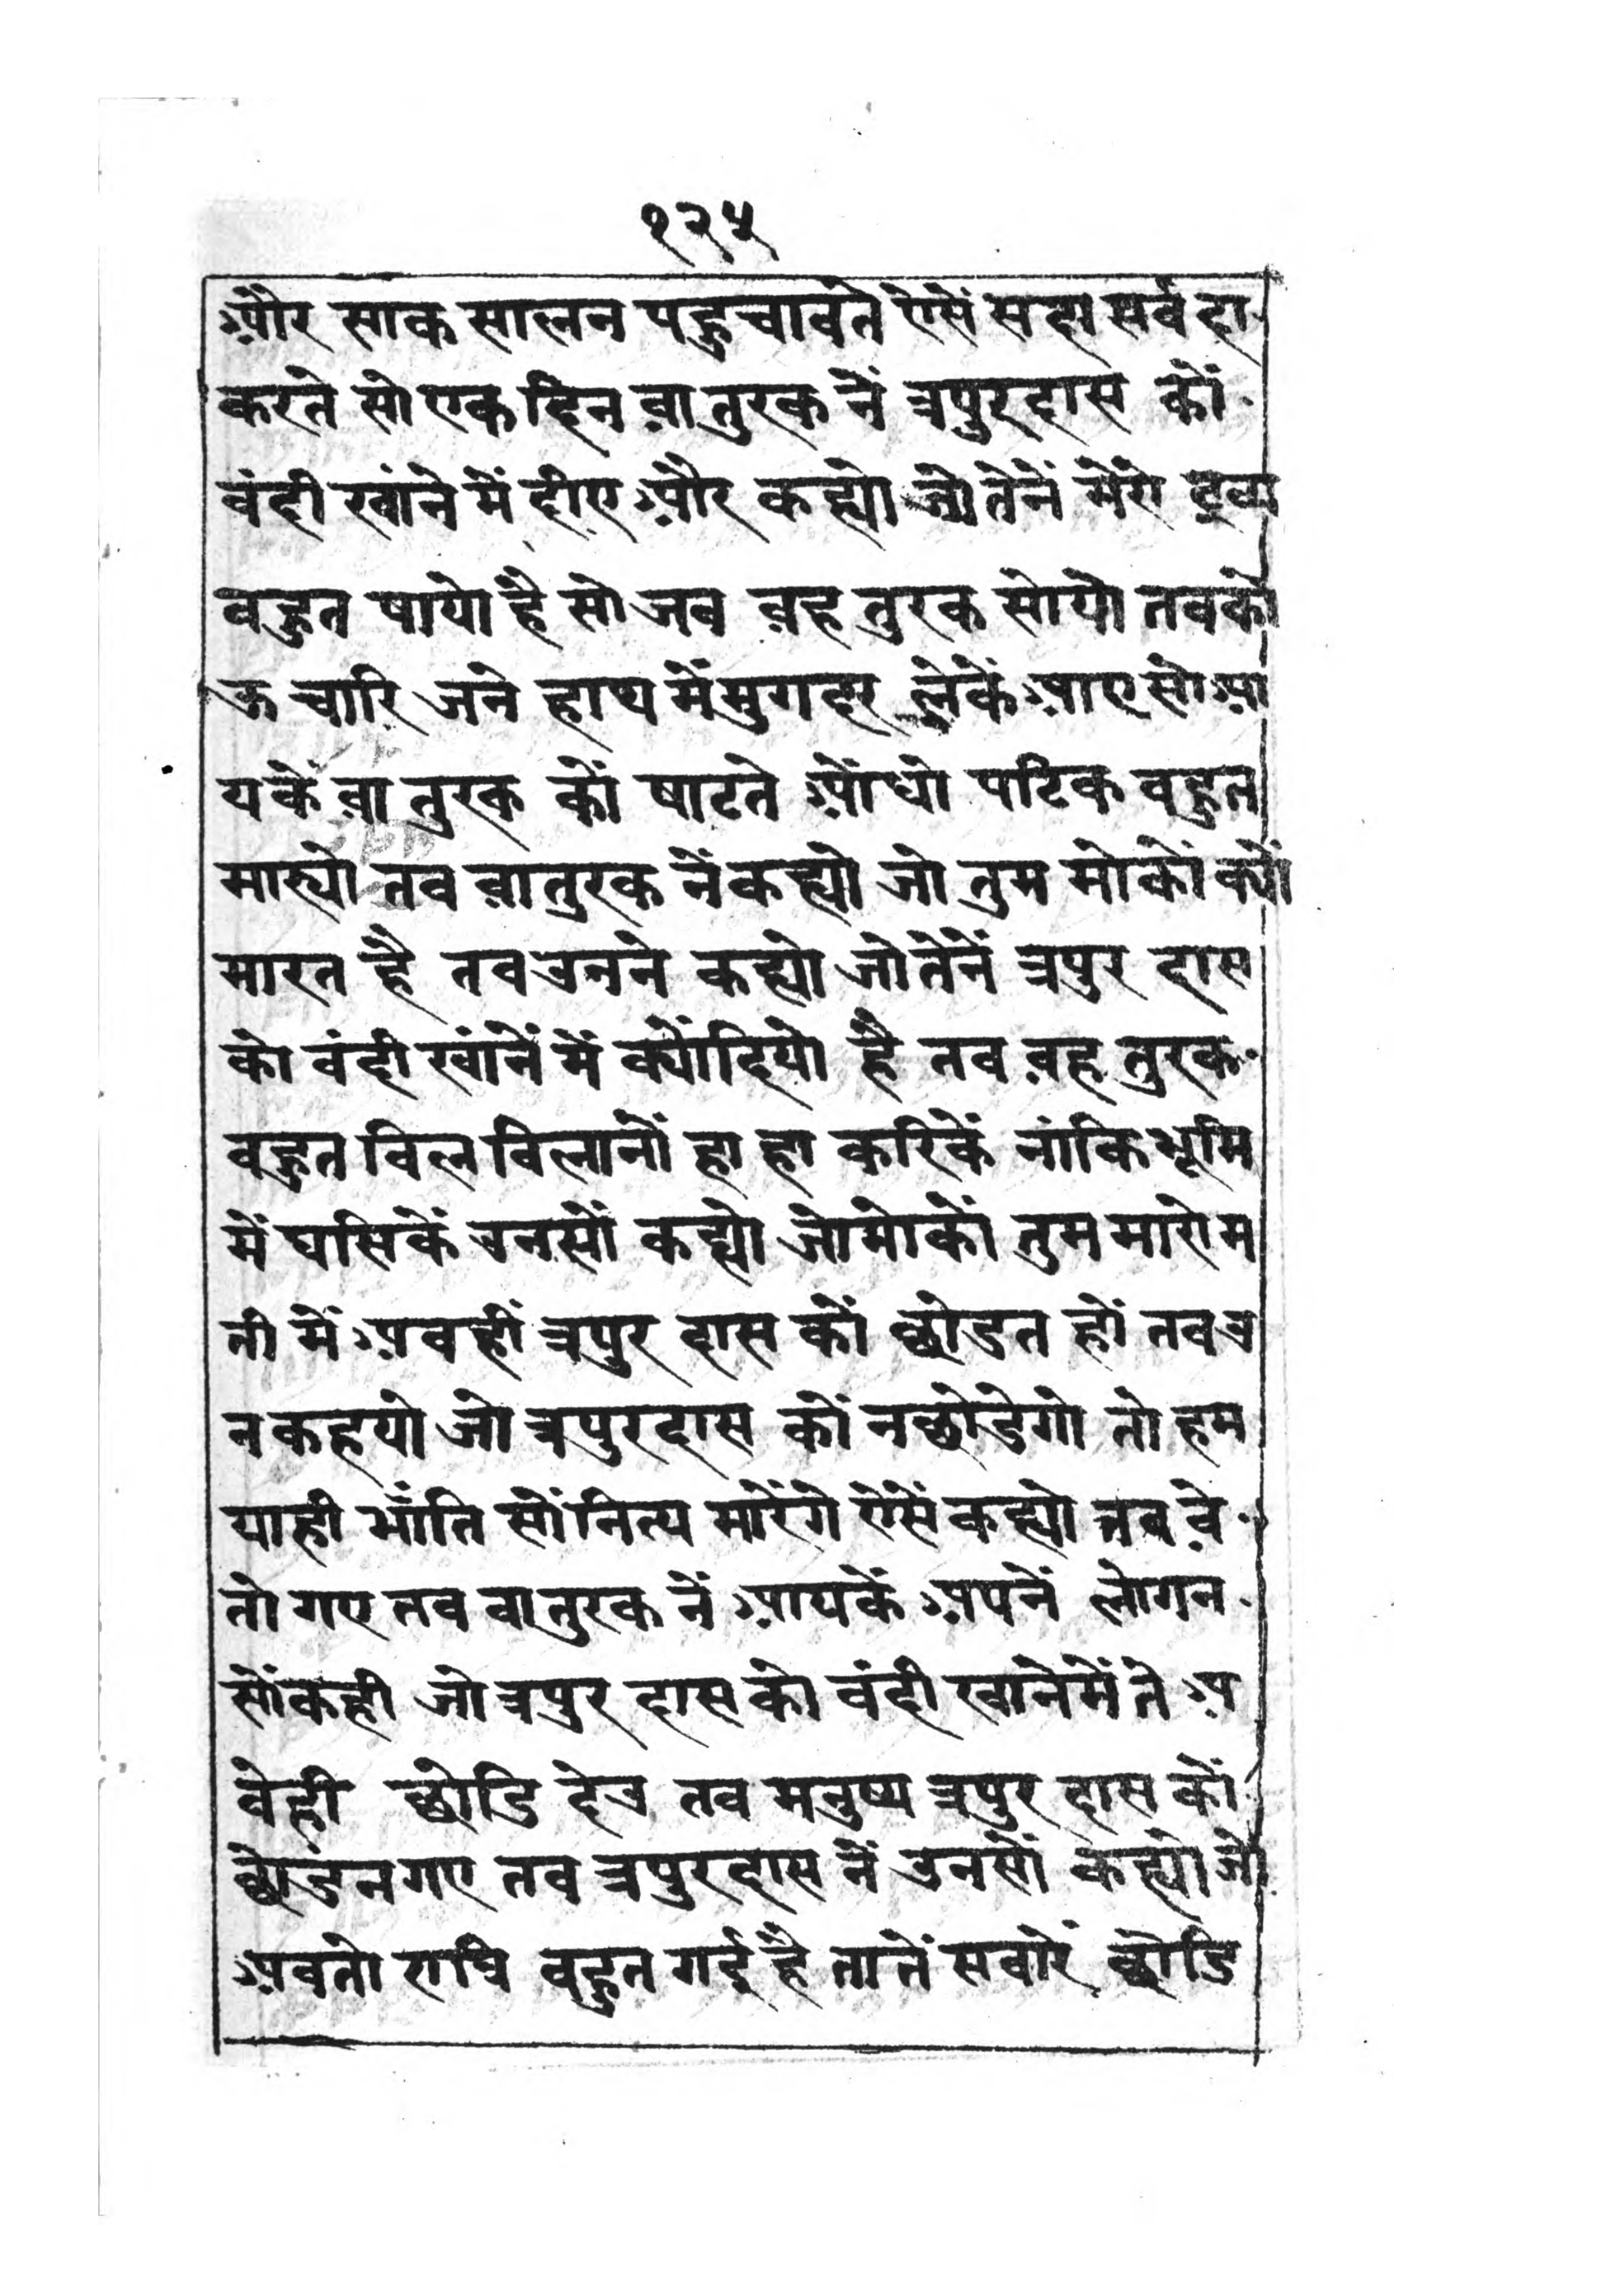 १२५
और साक सालन पहुचावते ऐसें सदा सर्वदा
करते सो एक दिन वा तुरक नें त्रपुरदास कों
वंदी खांने में दीए और कह्यो जो तेनें मेंरो द्रव्य
वहुत षायो है सो जव वह तुरक सोयो तव को
ऊ चारि जने हाथ में मुगदर लेकें आए सो आ
यकें वा तुरक कों षाटते ओंधो पटिक वहुत
मार्‍यो तव वा तुरक नें कह्यो जो तुम मोकों क्यों
मारत है तव उनने कह्यो जो तेनें त्रपुर दास
को वंदी खांनें में क्योंदियो है तव वह तुरक
वहुत विल विलानों हा हा करिकें नांकि भूमि
में घसिकें उनसों कह्यो जो मोकों तुम मारो म
ती में अवहीं त्रपुर दास कों छोडत हों तव उ
न कहयो जो त्रपुरदास कों न छोडेगो तो हम
याही भाँति सों नित्य मारेंगे ऐसें कह्यो तव वे
तो गए तव वा तुरक नें आयकें अपनें लोगन
सों कही जो त्रपुर दास को वंदी खाने में ते अ
वेही छोडि देउ तव मनुष्य त्रपुर दास कों
छोडन गए तव त्रपुरदास नें उनसों कह्यो जो
अवतो रात्रि वहुत गई है तातें सवारें छोडि